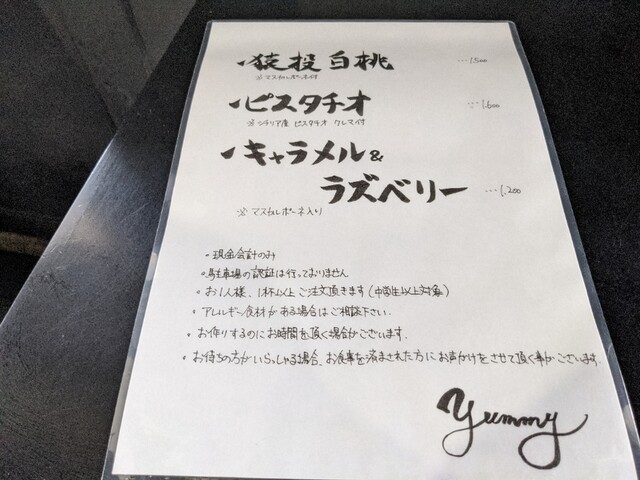 ・猿投白桃 …1,500
※マスカルポーネ付
・ピスタチオ … 1,600
※シチリア産 ピスタチオ クレマ付
・キャラメル&
ラズベリー …1,200
※マスカルポーネ入り
・現金会計のみ
・駐車場の認証は行っておりません
・お1人様、1杯以上ご注文頂きます(中学生以上対象)
・アレルギー食材がある場合はご相談下さい.
・お作りするのにお時間を頂く場合がございます.
・お待ちの方がいらっしゃる場合、お食事を済まされた方にお声かけをさせて頂く事がございます.
yummy